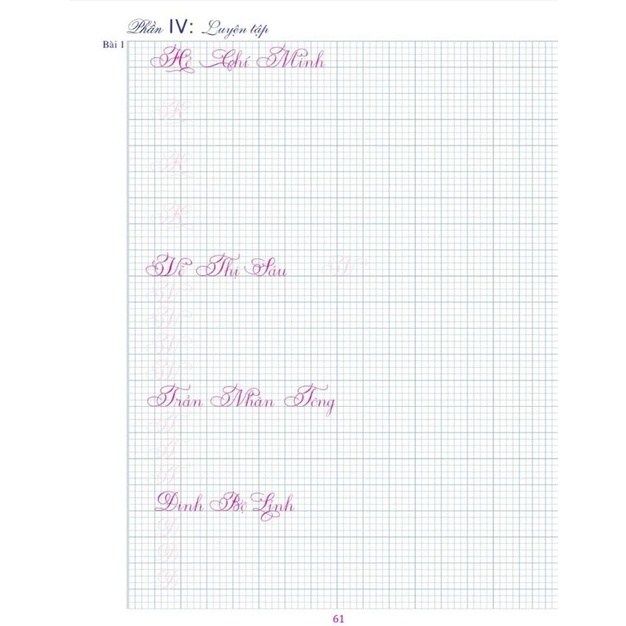 Phần IV: Luyện tập
Bài 1
Hồ Chí Minh
Võ Thị Sáu
Trần Nhân Tông
Đinh Bộ Lĩnh
61